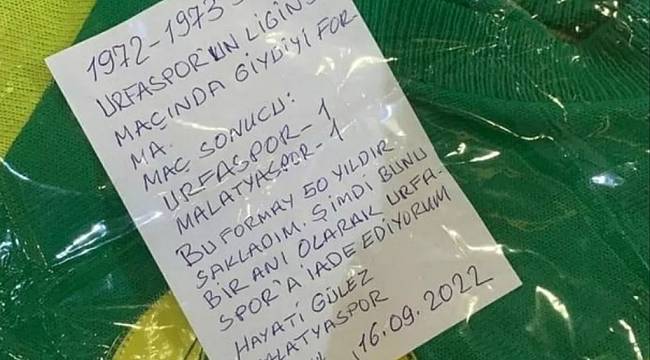 1972-1973
URFASPOR'UN LİGİN
MAÇINDA GİYDİYİ FOR-
MA.
MAÇ SONUCU:
URFASPOR-1
MALATYASPOR-1
BU FORMAY 50 YILDIR
SAKLADIM. ŞİMDİ BUNU
BİR ANI OLARAK URFA-
SPOR'A İADE EDİYORUM
HAYATİ GÜLEZ
MALATYASPOR
16.09.2022